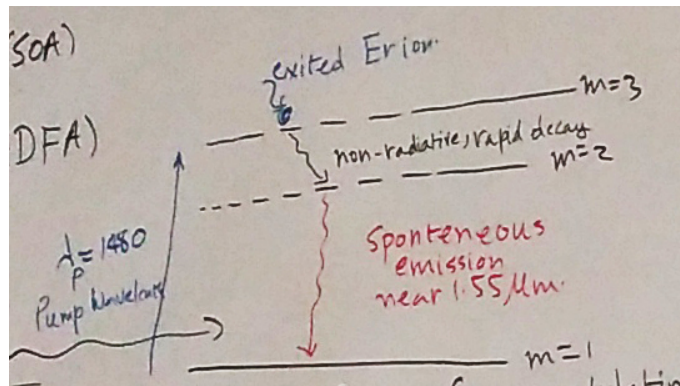 (SOA)
exited Er ion.
m=3
DFA)
non-radiative, rapid decay
m=2
λp=1480
Pump
Sponteneous
emission
near 1.55 μm.
m=1